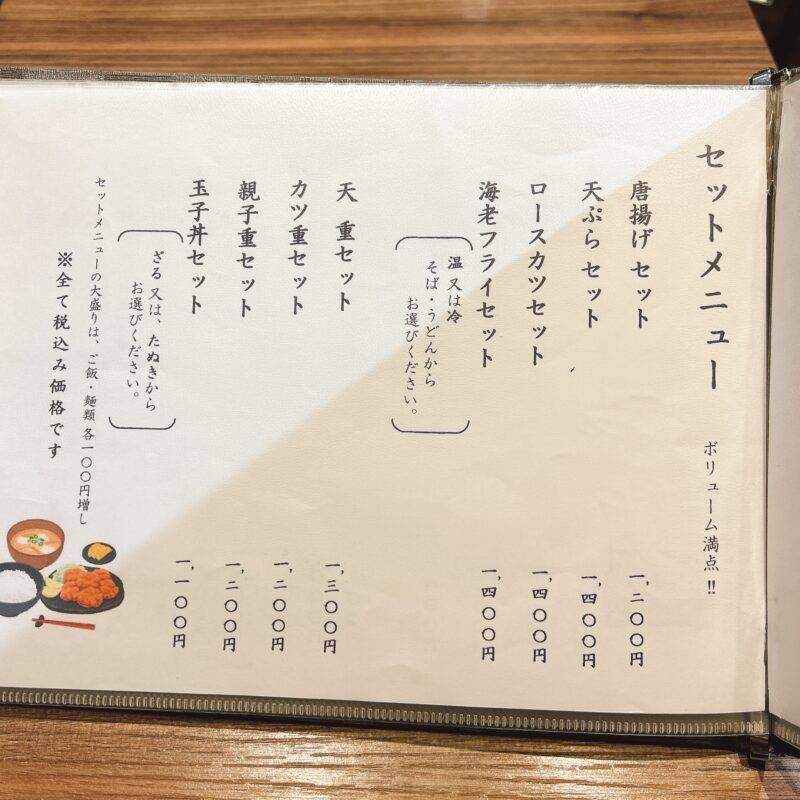 セットメニュー ボリューム満点!!
唐揚げセット 一,二〇〇円
天ぷらセット 一,四〇〇円
ロースカツセット 一,四〇〇円
海老フライセット 一,四〇〇円
温又は冷
そば・うどんから
お選びください。
天重セット 一,三〇〇円
カツ重セット 一,二〇〇円
親子重セット 一,二〇〇円
玉子丼セット 一,一〇〇円
ざる又は、たぬきから
お選びください。
セットメニューの大盛りは、ご飯・麺類 各一〇〇円増し
※全て税込み価格です